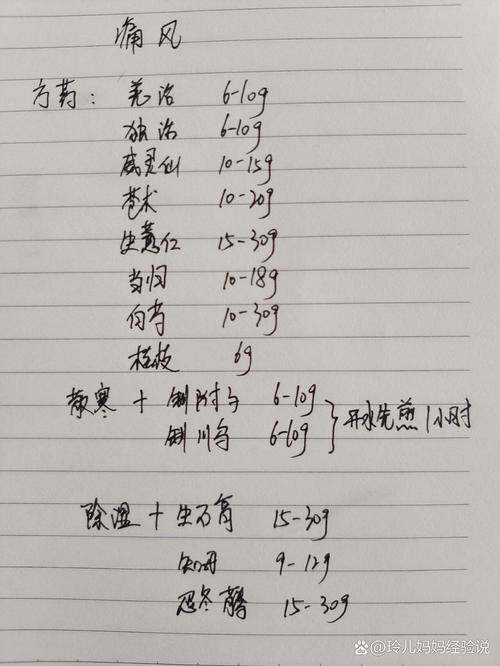 痛风
方药: 羌活 6-10g
独活 6-10g
威灵仙 10-15g
苍术 10-20g
生薏仁 15-30g
当归 10-18g
白芍 10-30g
桂枝 6g
散寒 + 制附子 6-10g
制川乌 6-10g
开水先煎1小时
除湿 + 生石膏 15-30g
知母 9-12g
忍冬藤 15-30g
玲儿妈妈经验说